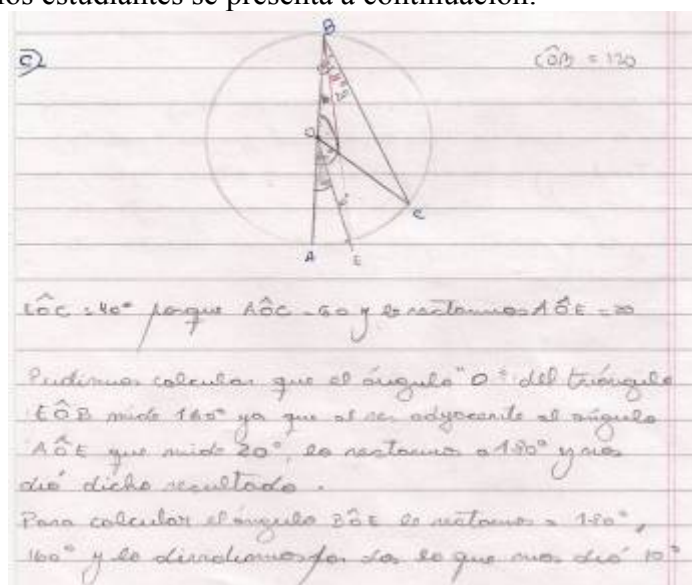 los estudiantes se presenta a continuación.
B
C)
CÔB = 120
O
C
A
E
EÔC = 40° porque AÔC = 60 y le restamos AÔE = 20
Pudimos calcular que el ángulo "O" del triángulo
EÔB mide 160° ya que al ser adyacente al ángulo
AÔE que mide 20°, lo restamos a 180° y nos
dió dicho resultado.
Para calcular el ángulo le restamos a 180°,
160° y lo dividimos por dos lo que nos dió 10°